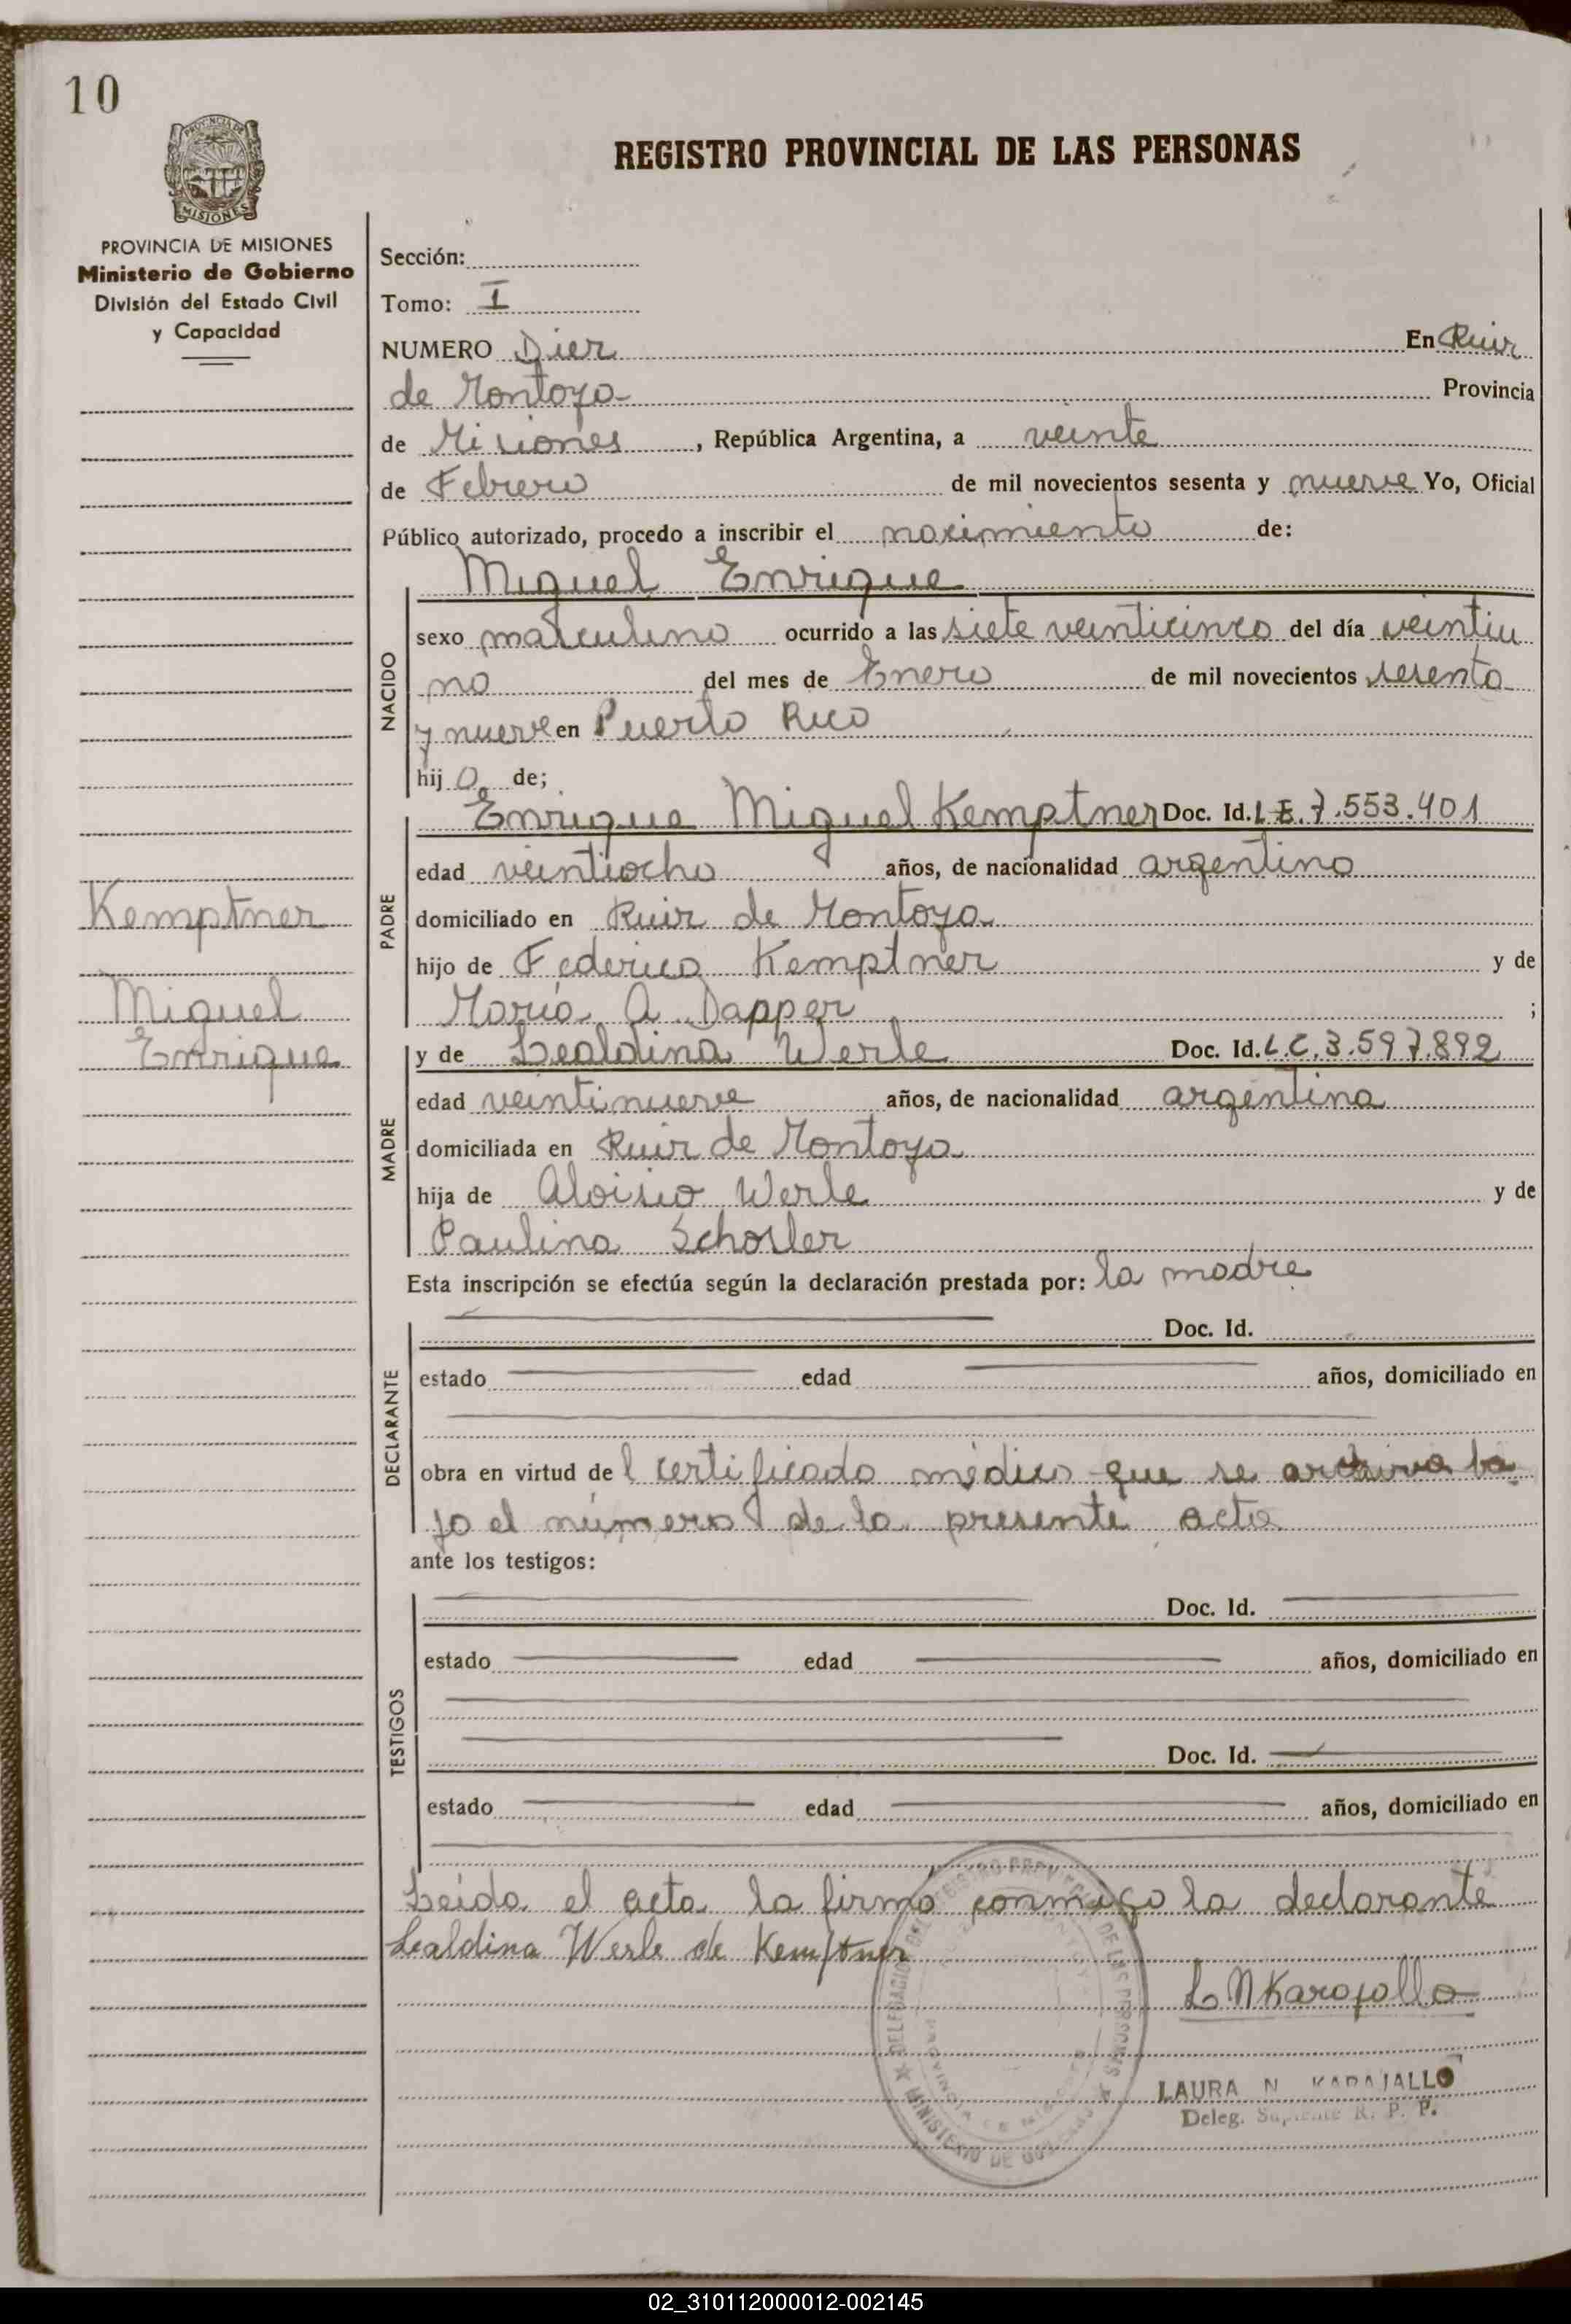 10
PROVINCIA DE MISIONES
REGISTRO PROVINCIAL DE LAS PERSONAS
PROVINCIA DE MISIONES
Ministerio de Gobierno
División del Estado Civil
y Capacidad
Sección:
Tomo: I
NUMERO Diez En Ruiz
de Montoya Provincia
de Misiones, República Argentina, a veinte
de Febrero de mil novecientos sesenta y nueve Yo, Oficial
Público autorizado, procedo a inscribir el nacimiento de:
Miguel Enrique
NACIDO
sexo masculino ocurrido a las siete veinticinco del día veintiu
no del mes de Enero de mil novecientos sesenta
y nueve en Puerto Rico
hijo de;
Enrique Miguel Kemptner Doc. Id. L E. 7.553.401
PADRE
edad veintiocho años, de nacionalidad argentino
domiciliado en Ruiz de Montoya
hijo de Federico Kemptner y de
María A. Dapper ;
Kemptner
Miguel
Enrique
y de Lealdina Werle Doc. Id. L.C. 3.597.892
MADRE
edad veintinueve años, de nacionalidad argentina
domiciliada en Ruiz de Montoya
hija de Aloisio Werle y de
Paulina Schosler
Esta inscripción se efectúa según la declaración prestada por: la madre
Doc. Id.
DECLARANTE
estado edad años, domiciliado en
obra en virtud del certificado médico que se archiva ba-
jo el número de la presente acta
ante los testigos:
Doc. Id.
TESTIGOS
estado edad años, domiciliado en
Doc. Id.
estado edad años, domiciliado en
Leída el acta la firmó conmigo la declarante
Lealdina Werle de Kemptner
L N Karajallo
LAURA N KARAJALLO
Deleg. Suplente R. P. P.
02_310112000012-002145